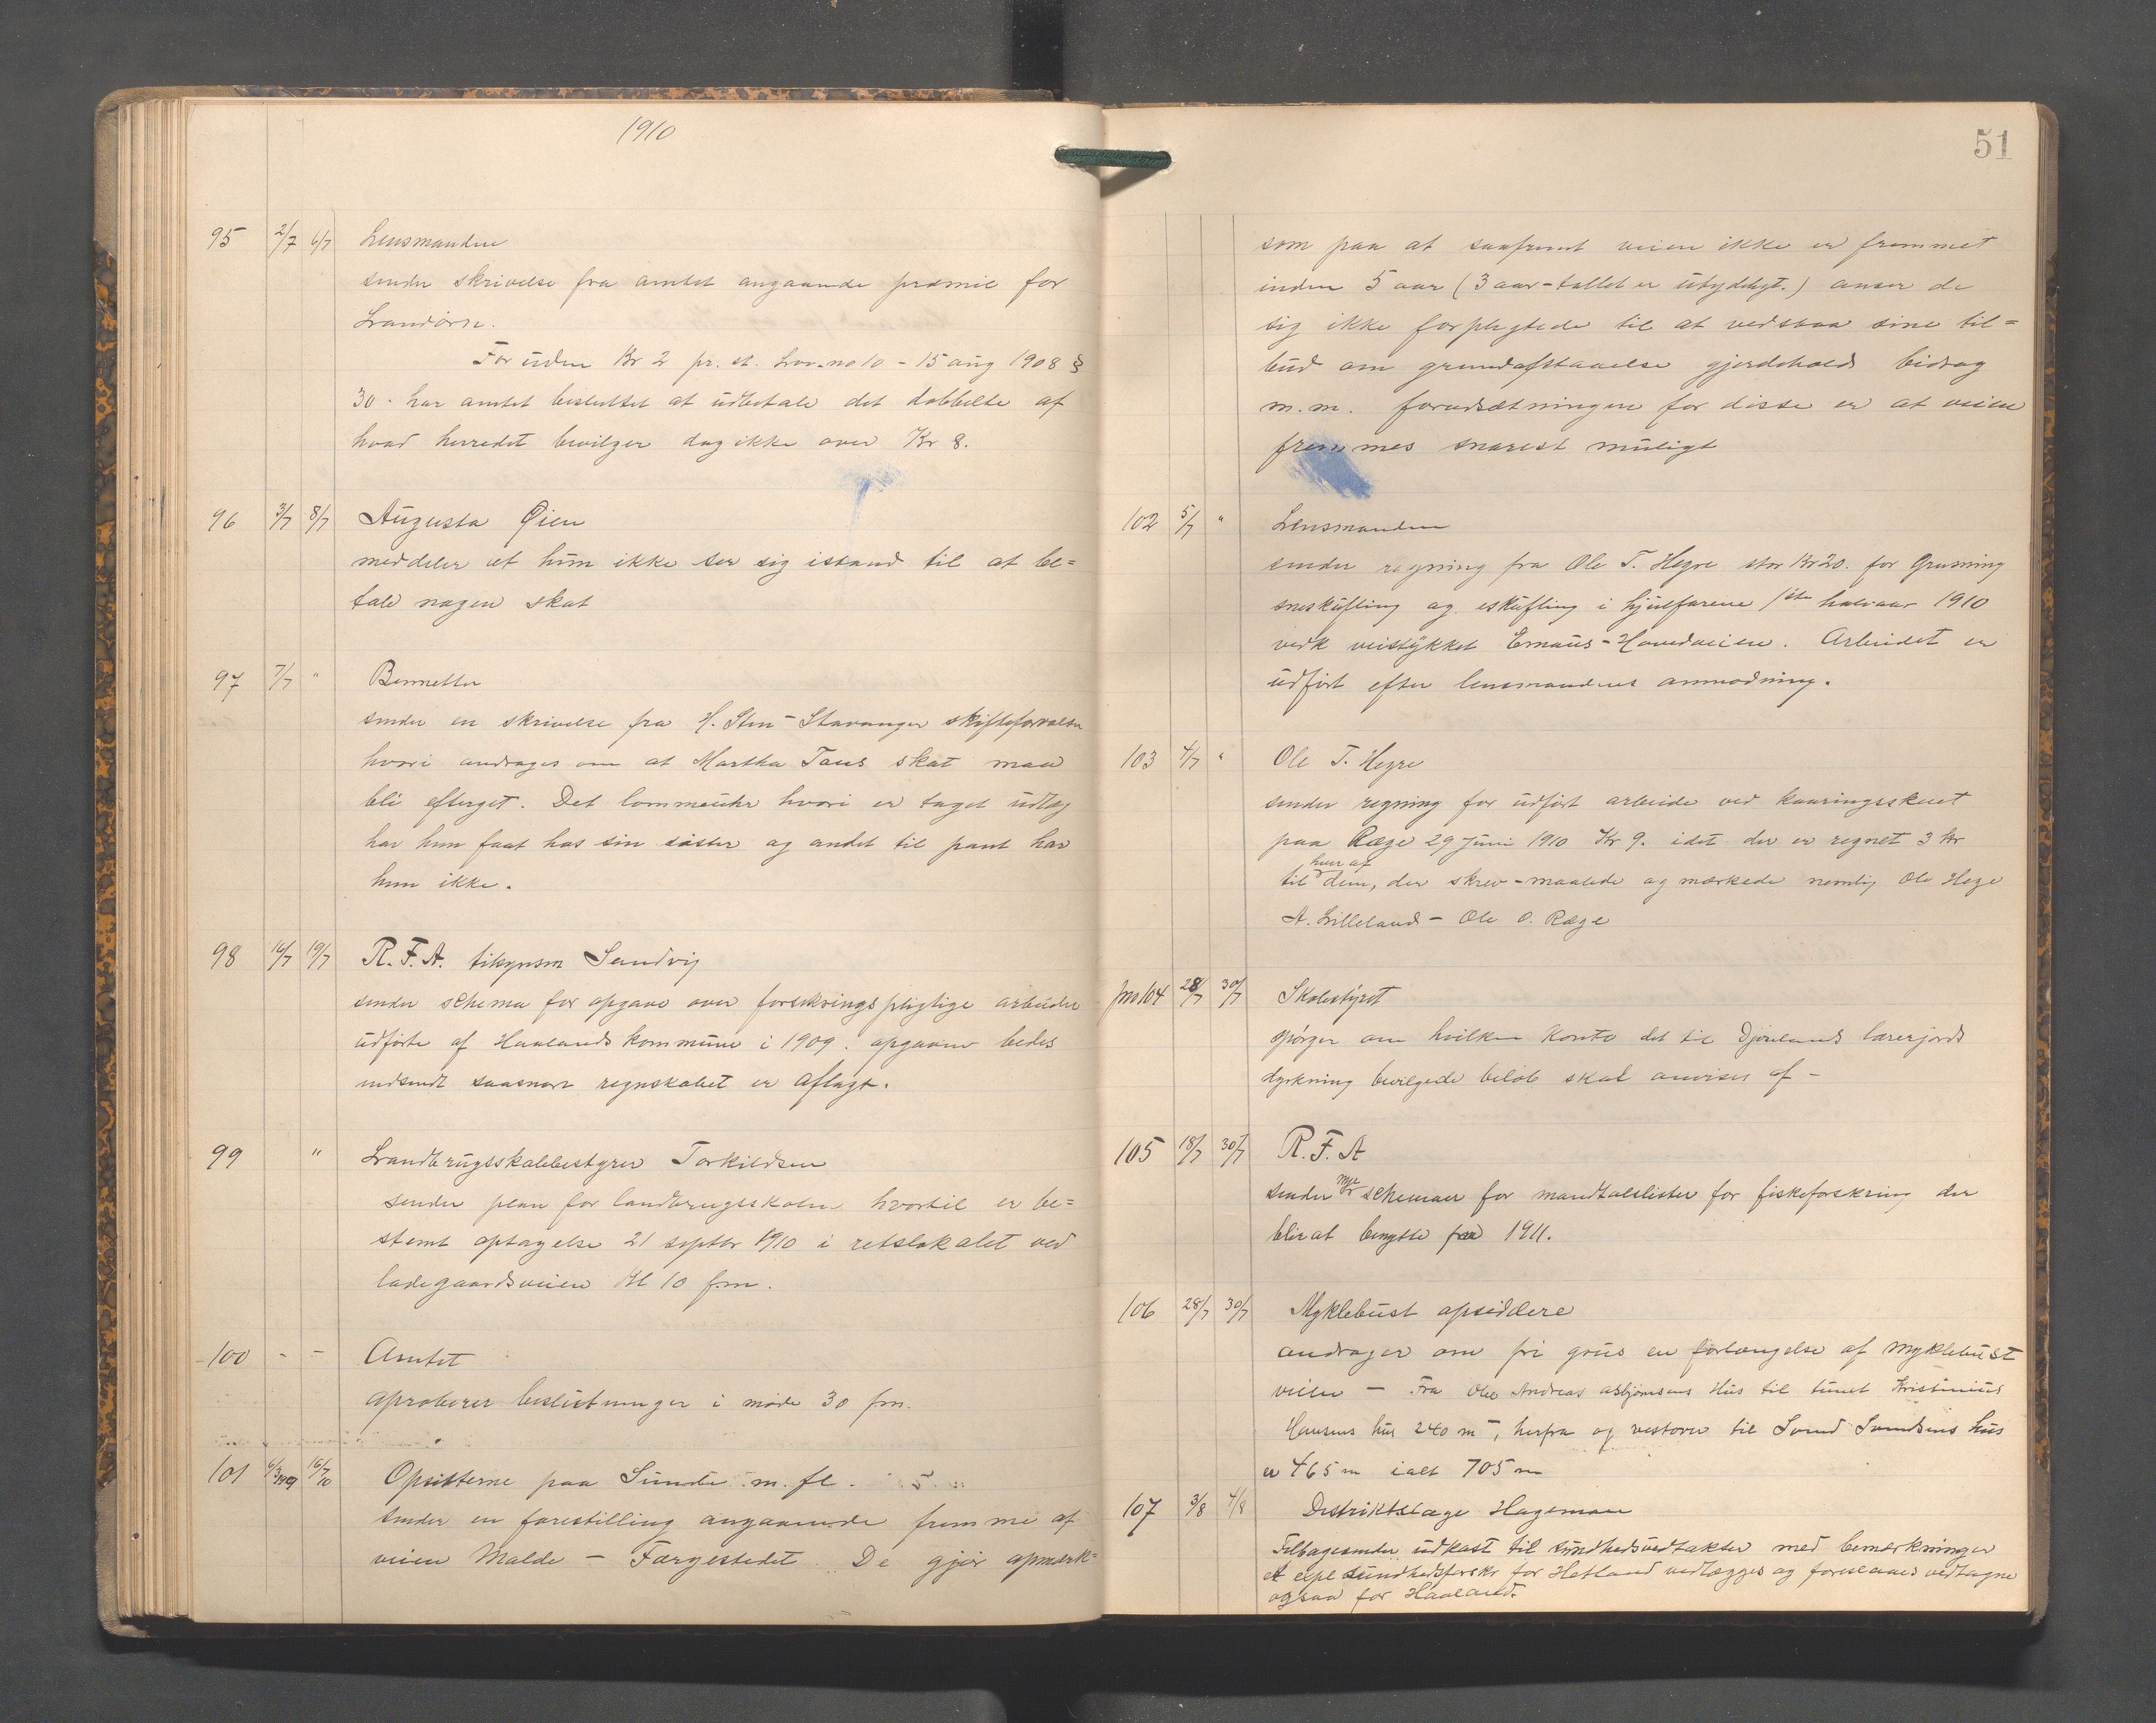 1910
95 2/7 6/7 Lensmanden
sender skrivelse fra amtet angaaende præmie for
Landørn.
Foruden Kr 2 pr. st. Lov no 10 - 15 aug 1908 §
30. har amtet besluttet at udbetale det dobbelte af
hvad herredet bevilger dog ikke over Kr 8.
96 3/7 8/7 Augusta Øien
meddeler at hun ikke ser sig istand til at be=
tale nogen skat
97 7/7 " Bennetter
sender en skrivelse fra H. Sten - Stavanger skifteforvalter
hvori andrages om at Martha Taus skat maa
bli efterget. Det lommeuhr hvori er taget udlæg
har hun faat hos sin søster og andet til pant har
hun ikke.
98 16/7 19/7 R. F. A. tilsynsm Sandvig
sender schema for opgave over forsikringspligtige arbeider
udførte af Haalands kommune i 1909. opgaven bedes
indsendt saasnart regnskabet er aflagt.
99 " Landbrugsskolebestyrer Torkildsen
sender plan for landbrugsskolen hvortil er be=
stemt optagelse 21 septbr 1910 i retslokalet ved
ladegaardsveien Kl 10 fm.
100 - - Amtet
aproberer beslutninger i møde 30 fm.
101 6/3 1909 16/7 10 Opsitterne paa Sunde m. fl.
sender en forestilling angaaende fremme af
veien Malde - Færgestedet. De gjør opmærk=
51
som paa at saafremt veien ikke er fremmet
inden 5 aar (3 aar - tallet er utydeligt.) anser de
sig ikke forpligtede til at vedstaa sine til=
bud om grundafstaaelse gjerdehold bidrag
m.m. forudsætningen for disse er at veien
fremmes snarest muligt
102 5/7 " Lensmanden
sender regning fra Ole T. Hegre stor Kr 20. for Grusning
sneskufling og iskufling i hjulfarene 1ste halvaar 1910
vedk veistykket Emaus - Hovedveien. Arbeidet er
udført efter lensmandens anmodning.
103 4/7 " Ole T. Hegre
sender regning for udført arbeide ved kaaringsskuet
paa Ræge 29 Juni 1910 Kr 9. idet der er regnet 3 kr
til hver af dem, der skrev - maalede og mærkede nemlig Ole Hegre
A. Lilleland - Ole O. Ræge
jno 104 28/7 30/7 Skolestyret
spørger om hvilken Konto det til Djøvelands lærerjords
dyrkning bevilgede beløb skal anvises af -
105 18/7 30/7 R. F. A
sender nye schemaer for mandtalslister for fiskeforsikring der
blir at benytte fra 1911.
106 28/7 30/7 Myklebust opsiddere
andrager om fri grus en forlængelse af Myklebust
veien - Fra Ole Andreas Asbjørnsens Hus til tunet Kristinius
Hansens hus 240 m, herfra og vestover til Svend Svendsens hus
er 465 m ialt 705 m
107 3/8 4/8 Distriktslæge Hageman
Tilbagesender udkast til sundhedsvedtækter med bemærkninger
et expl sundhedsforskr for Hetland vedlægges og foreslaaes vedtagne
ogsaa for Haaland.